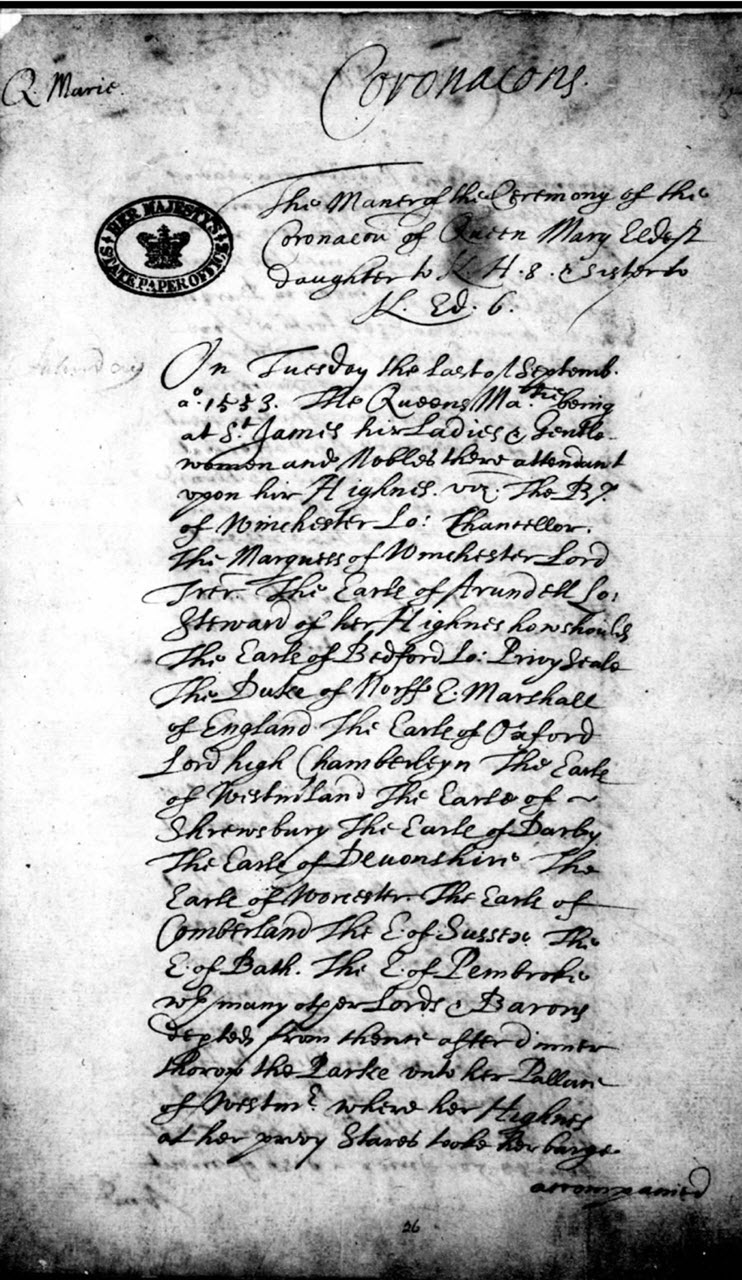 Q. Marie.
Coronacons.
HER MAJESTY'S STATE PAPER OFFICE
The Maner of the Ceremony of the
Coronacon of Queen Mary Eldest
daughter to K. H. 8. & sister to
K. Ed. 6.
On Tuesday the last of Septemb.
a.º 1553. The Queens Ma.tie being
at S.t James hir Ladies & Gentle-
women and Nobles there attendant
vpon hir Highnes. viz. The Bp
of Winchester Lo: Chancellor.
The Marquess of Winchester Lord
Trer. The Earle of Arundell Lo:
Steward of her Highnes howshould
The Earle of Bedford Lo: Privy Seale
The Duke of Norff. E. Marshall
of England The Earle of Oxford
Lord high Chamberleyn The Earle
of Westmland The Earle of ~
Shrewsbury The Earle of Darby
The Earle of Devonshire The
Earle of Worcester The Earle of
Comberland The E. of Sussex The
E. of Bath. The E. of Pembroke
wth many other Lords & Barons
depted from thence after dinner
thorow the Parke vnto her Pallace
of Westmr. where her Highnes
at her privy Stares tooke her barge
accompanied
26